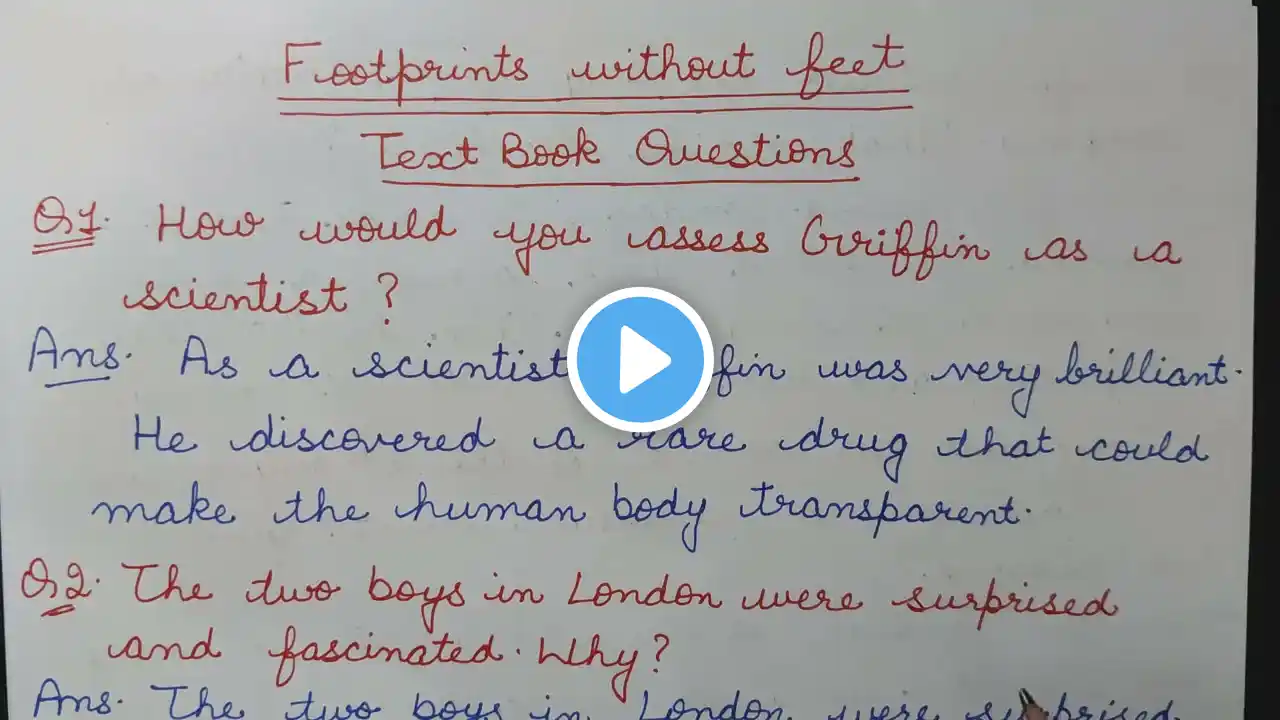 Footprints without feet
Text Book Questions
Q1. How would you assess Griffin as a
scientist ?
Ans. As a scientist ffin was very brilliant.
He discovered a rare drug that could
make the human body transparent.
Q2. The two boys in London were surprised
and fascinated. Why?
Ans. The two boys in London were surprised